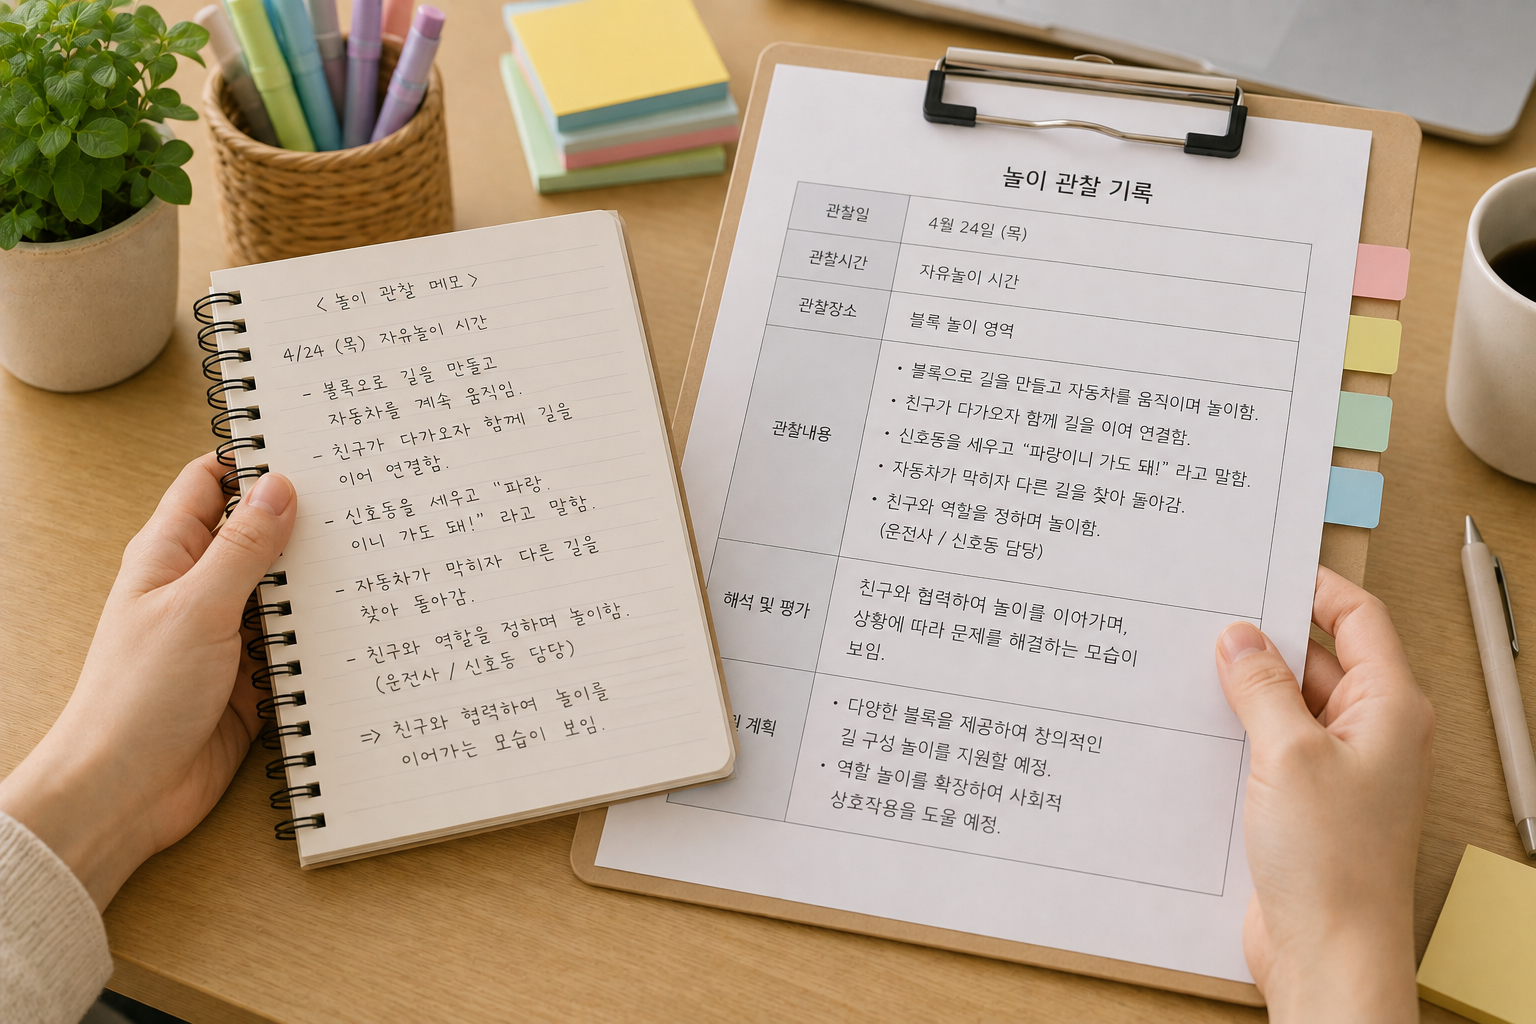 < 놀이 관찰 메모 >
4/24 (목) 자유놀이 시간
- 블록으로 길을 만들고
자동차를 계속 움직임.
- 친구가 다가오자 함께 길을
이어 연결함.
- 신호동을 세우고 "파랑.
이니 가도 돼!" 라고 말함.
- 자동차가 막히자 다른 길을
찾아 돌아감.
- 친구와 역할을 정하며 놀이함.
(운전사 / 신호동 담당)
=> 친구와 협력하여 놀이를
이어가는 모습이 보임.
놀이 관찰 기록
관찰일 4월 24일 (목)
관찰시간 자유놀이 시간
관찰장소 블록 놀이 영역
관찰내용
• 블록으로 길을 만들고 자동차를 움직이며 놀이함.
• 친구가 다가오자 함께 길을 이여 연결함.
• 신호동을 세우고 “파랑이니 가도 돼!” 라고 말함.
• 자동차가 막히자 다른 길을 찾아 돌아감.
• 친구와 역할을 정하며 놀이함.
(운전사 / 신호동 담당)
해석 및 평가
친구와 협력하여 놀이를 이어가며,
상황에 따라 문제를 해결하는 모습이
보임.
계획
• 다양한 블록을 제공하여 창의적인
길 구성 놀이를 지원할 예정.
• 역할 놀이를 확장하여 사회적
상호작용을 도울 예정.